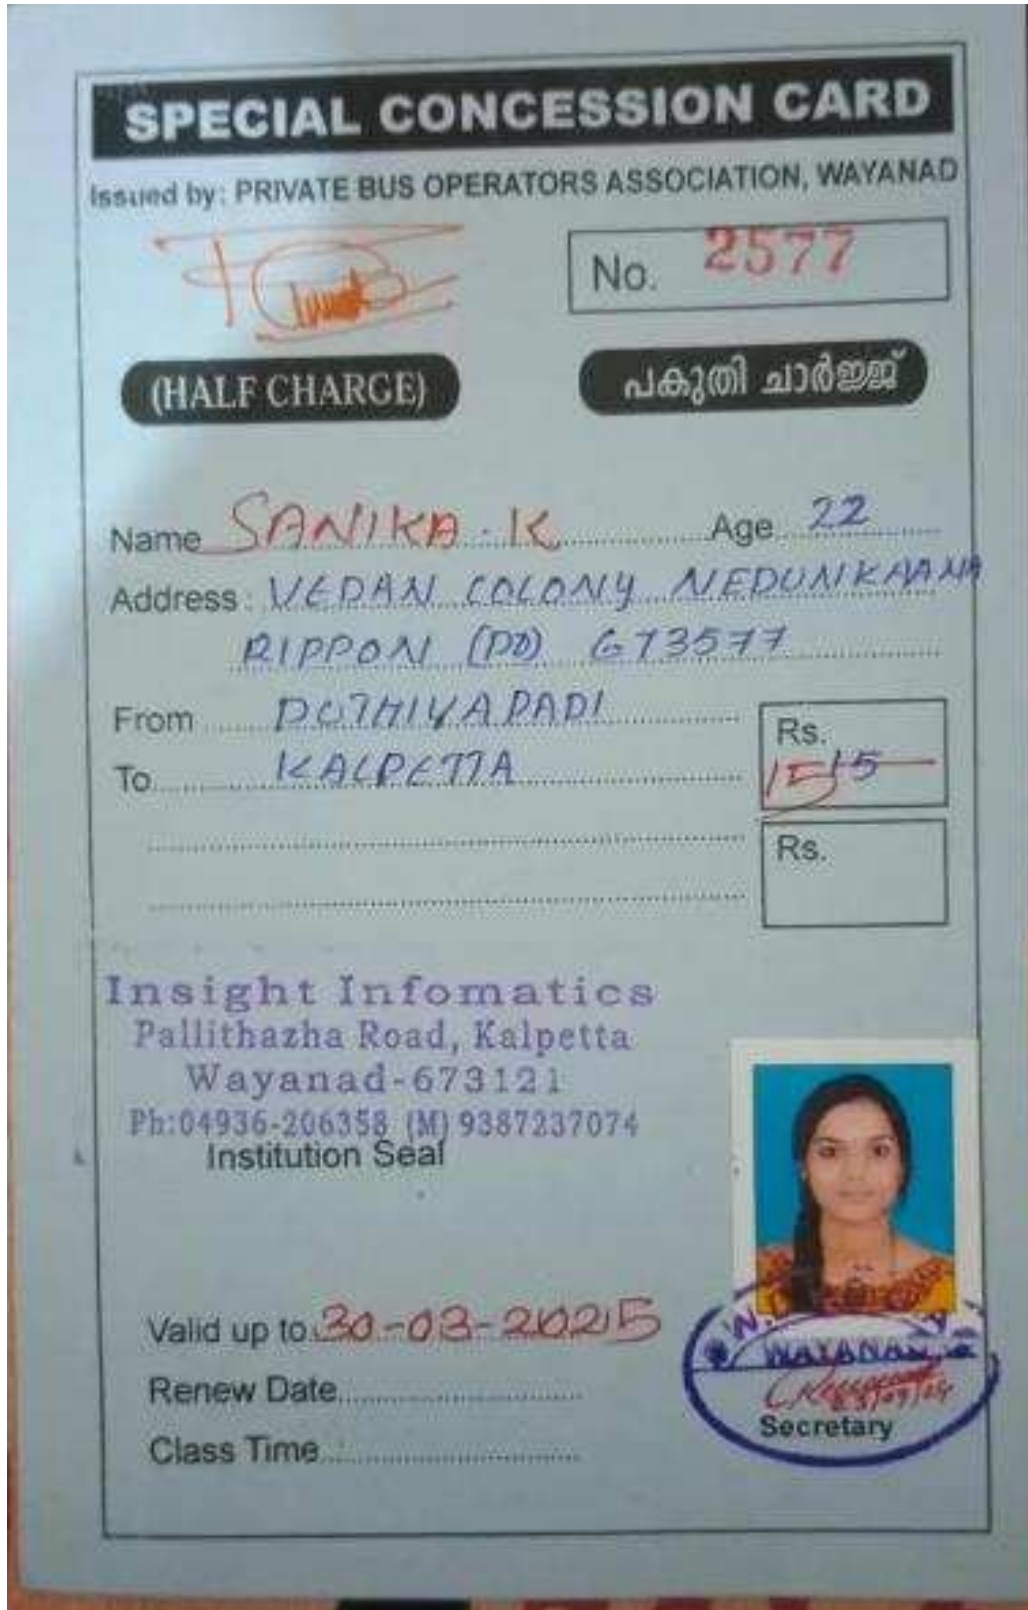 SPECIAL CONCESSION CARD
Issued by: PRIVATE BUS OPERATORS ASSOCIATION, WAYANAD
No. 2577
(HALF CHARGE) പകുതി ചാർജ്ജ്
Name SANIKA . K Age 22
Address : VEDAN COLONY NEDUNIKAANA
RIPPON (PO) 673577
From POTHIYAPADI
To KALPETTA
Rs.
15 15
Rs.
Insight Infomatics
Pallithazha Road, Kalpetta
Wayanad-673121
Ph:04936-206358 (M) 9387237074
Institution Seal
Valid up to 30-03-2025
Renew Date
Class Time :
WAYANAD
Secretary